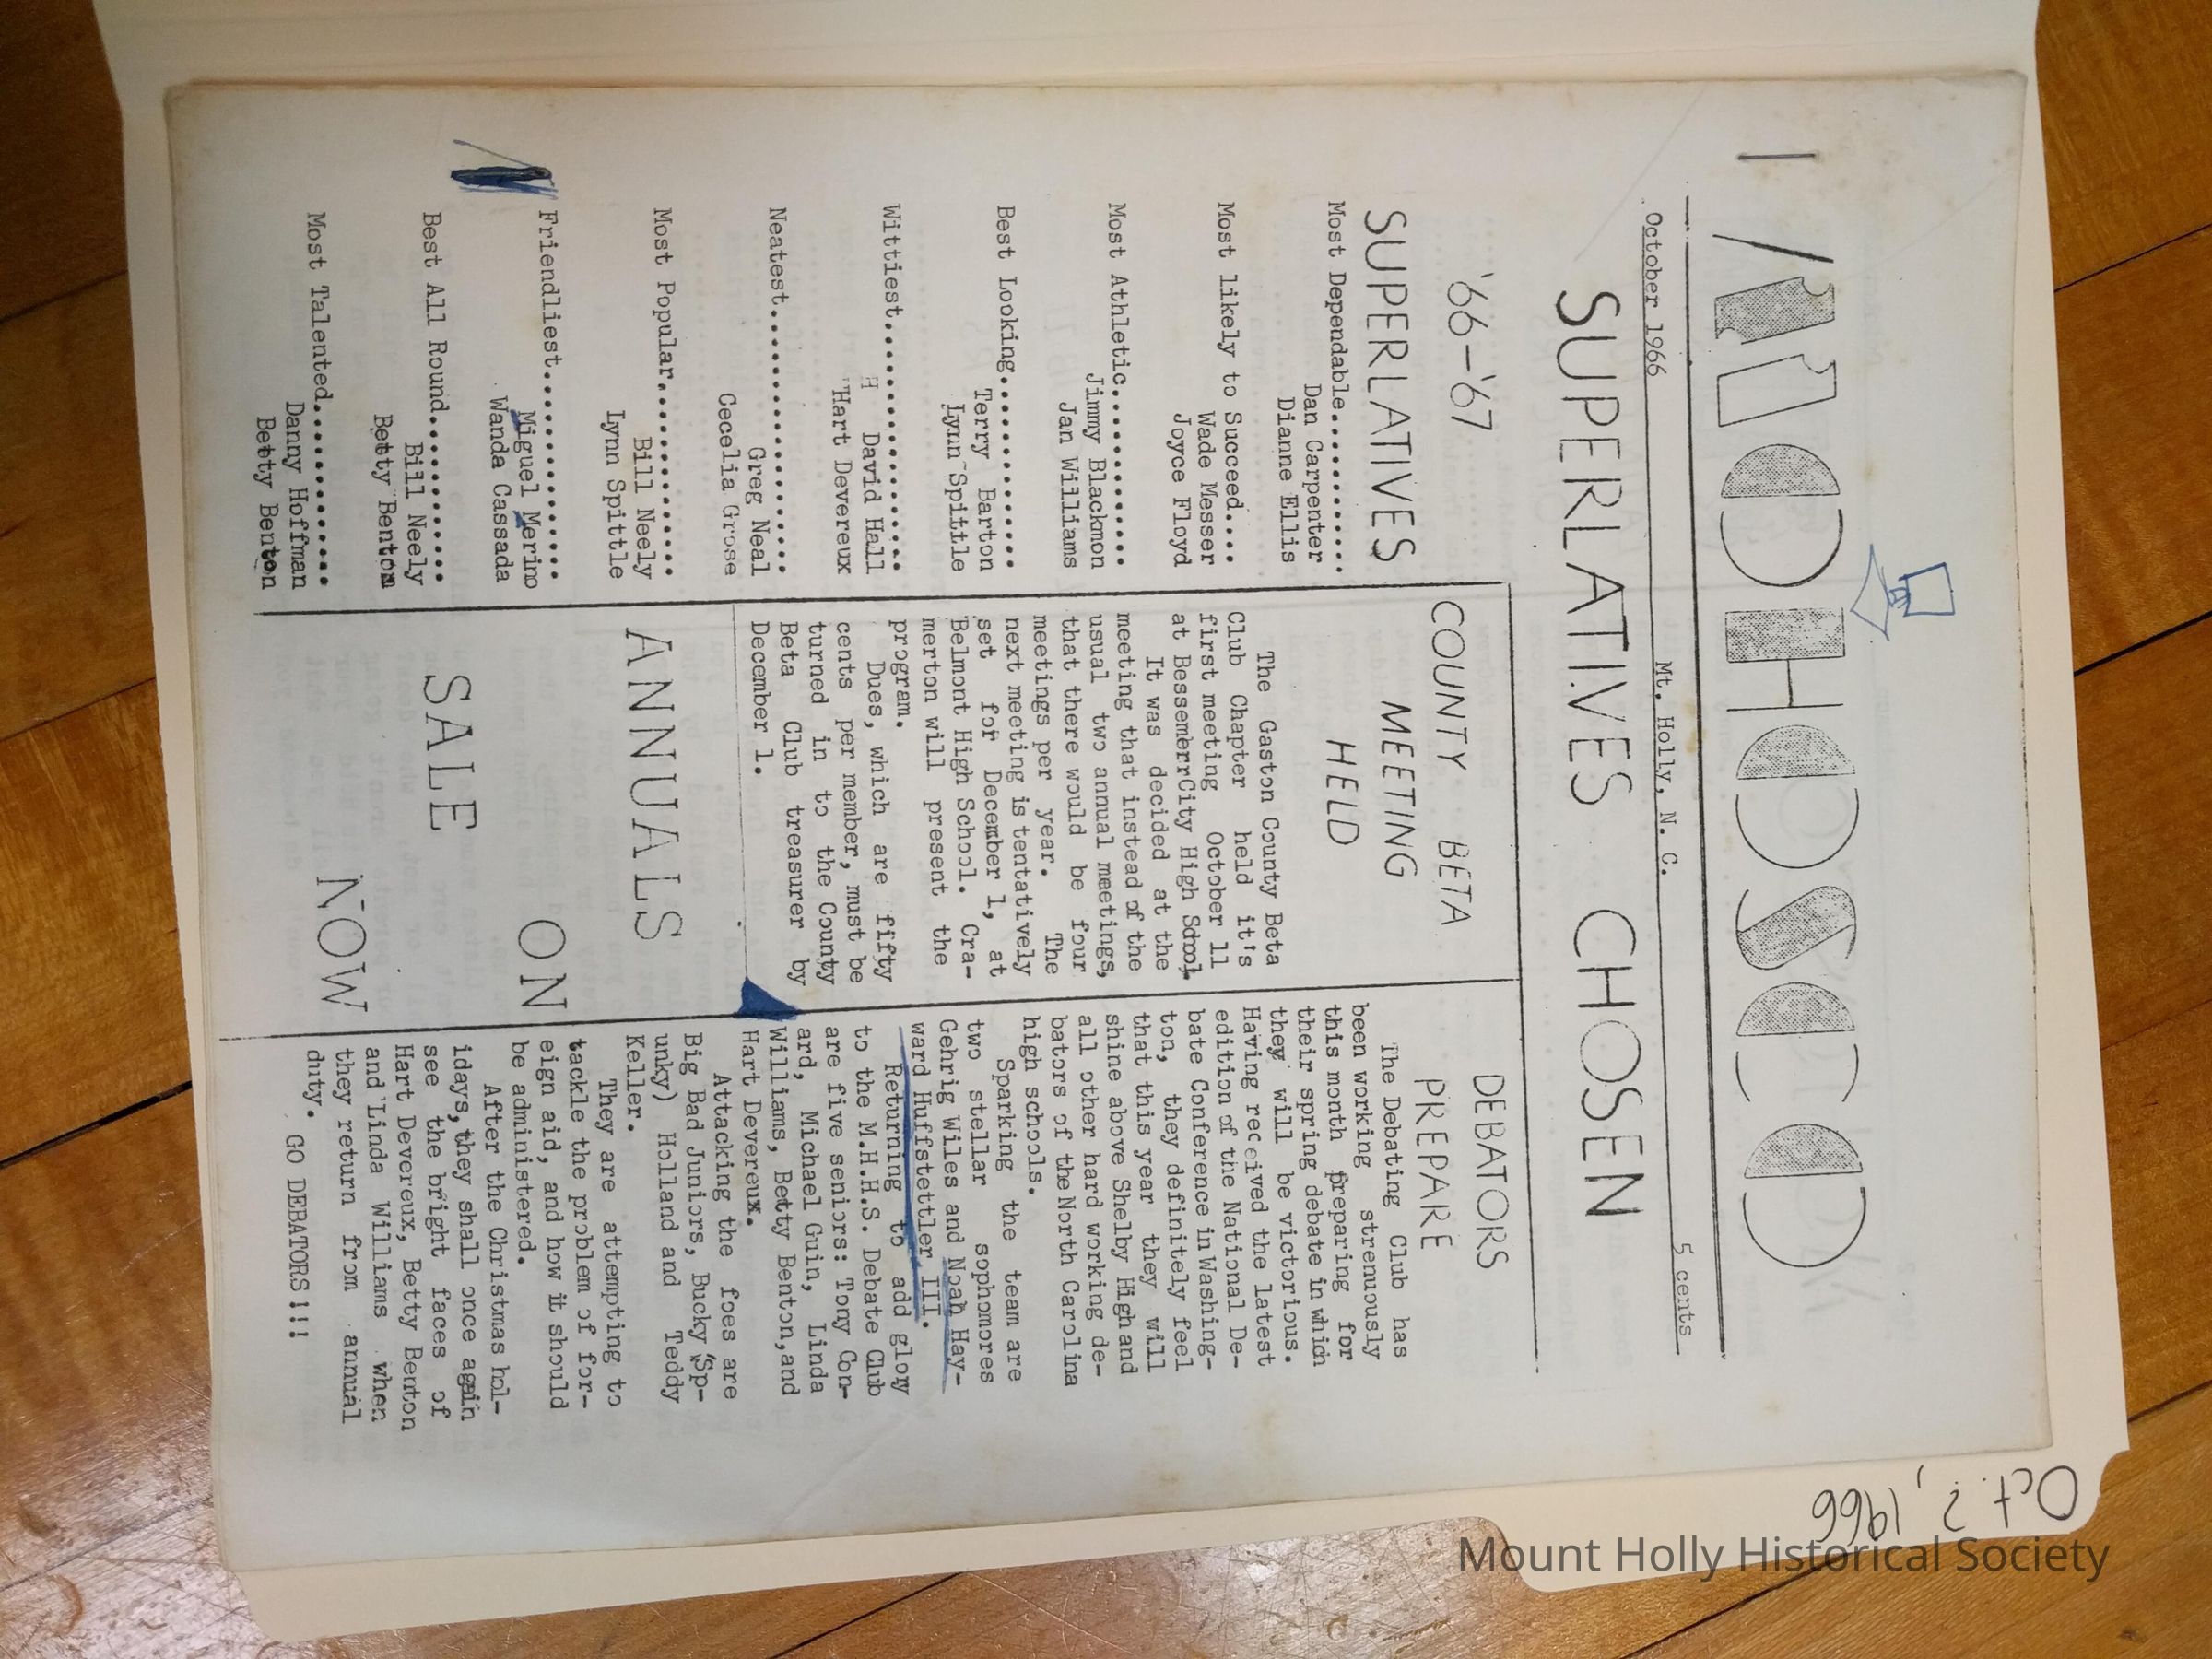 October 1966 Mt. Holly, N. C. 5 cents
SUPERLATIVES CHOSEN
'66-'67
SUPERLATIVES
Most Dependable...........
Dan Carpenter
Dianne Ellis
Most likely to Succeed....
Wade Messer
Joyce Floyd
Most Athletic.............
Jimmy Blackmon
Jan Williams
Best Looking..............
Terry Barton
Lynn Spittle
Wittiest..................
H David Hall
Hart Devereux
Neatest...................
Greg Neal
Cecelia Grose
Most Popular..............
Bill Neely
Lynn Spittle
Friendliest...............
Miguel Merino
Wanda Cassada
Best All Round............
Bill Neely
Betty Benton
Most Talented.............
Danny Hoffman
Betty Benton
COUNTY BETA
MEETING
HELD
The Gaston County Beta
Club Chapter held it's
first meeting October 11
at BessemerrCity High School.
It was decided at the
meeting that instead of the
usual two annual meetings,
that there would be four
meetings per year. The
next meeting is tentatively
set for December 1, at
Belmont High School. Cra-
merton will present the
program.
Dues, which are fifty
cents per member, must be
turned in to the County
Beta Club treasurer by
December 1.
ANNUALS
ON
SALE
NOW
DEBATORS
PREPARE
The Debating Club has
been working strenuously
this month preparing for
their spring debate in which
they will be victorious.
Having received the latest
edition of the National De-
bate Conference in Washing-
ton, they definitely feel
that this year they will
shine above Shelby High and
all other hard working de-
bators of the North Carolina
high schools.
Sparking the team are
two stellar sophomores
Gehrig Wiles and Noah Hay-
ward Huffstettler III.
Returning to add glory
to the M.H.H.S. Debate Club
are five seniors: Tony Con-
ard, Michael Guin, Linda
Williams, Betty Benton,and
Hart Devereux.
Attacking the foes are
Big Bad Juniors, Bucky (Sp-
unky) Holland and Teddy
Keller.
They are attempting to
tackle the problem of for-
eign aid, and how it should
be administered.
After the Christmas hol-
idays, they shall once again
see the bright faces of
Hart Devereux, Betty Benton
and Linda Williams when
they return from annual
duty.
GO DEBATORS!!!
Oct. ?, 1966
Mount Holly Historical Society